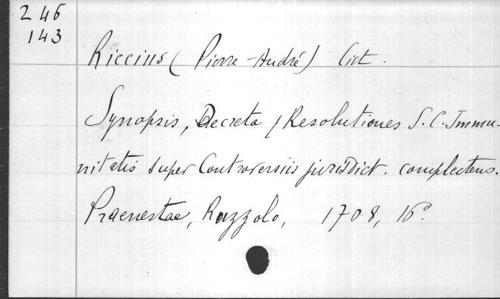 246
143
Riccius (Pierre-André) Cist.
Synopsis, Decreta / Resolutiones S. C. Immu-
nitatis super Controversiis juridict. complectens.
Praenestae, Razzolo, 1708, 16°